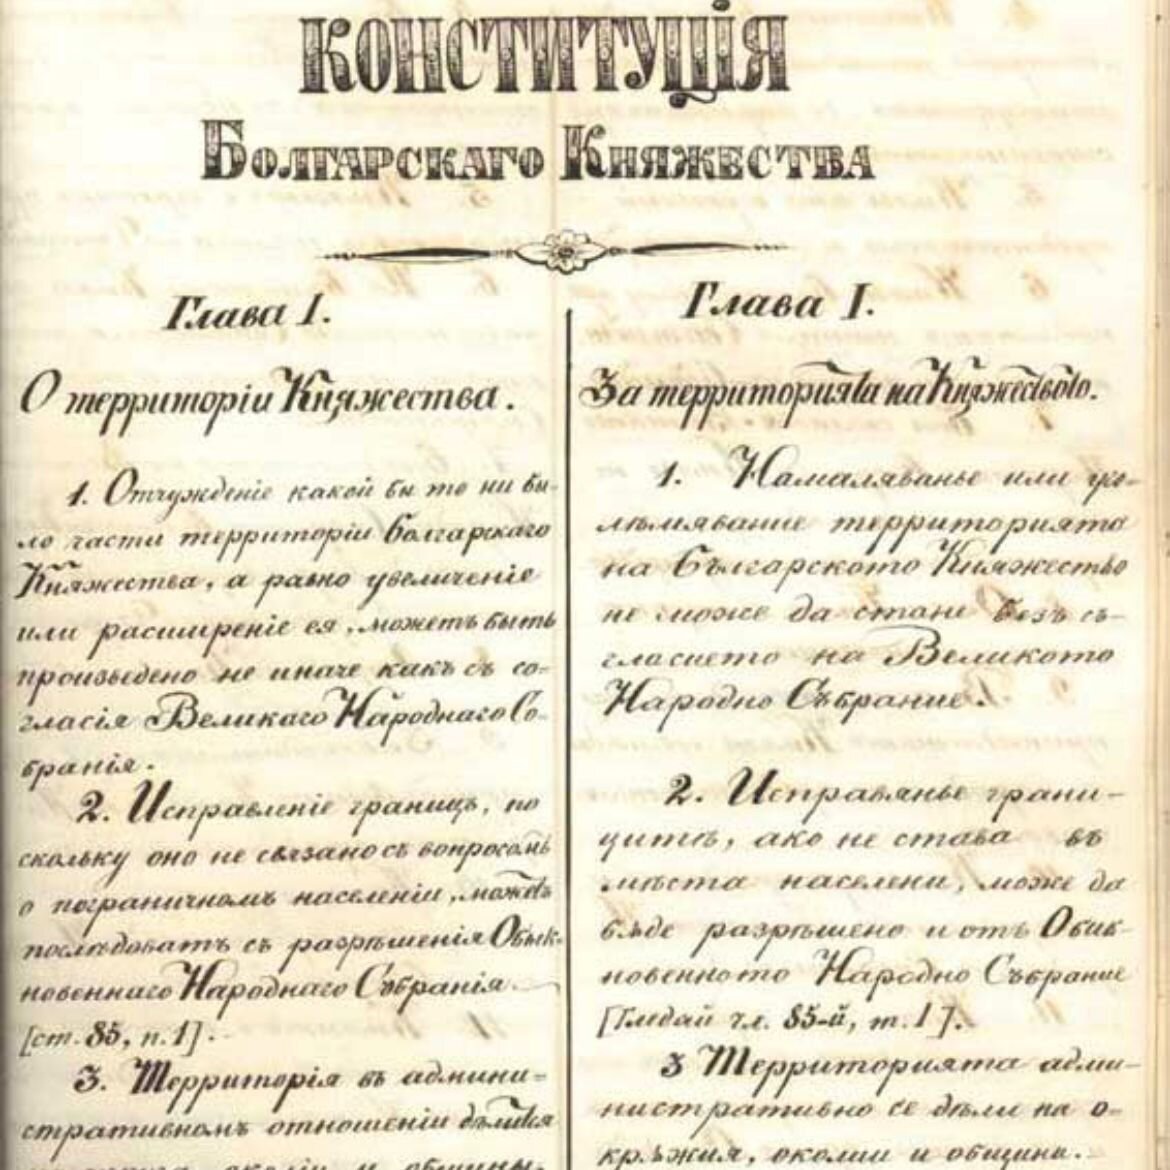 КОНСТИТУЦІЯ
БОЛГАРСКАГО КНЯЖЕСТВА
Глава I.
О территоріи Княжества.
1. Отчужденіе какой бы то ни бы-
ло части территоріи Болгарскаго
Княжества, а равно увеличеніе
или расширеніе ея, можетъ быть
произведено не иначе какъ съ со-
гласія Великаго Народнаго Со-
бранія.
2. Исправленіе границъ, по
скольку оно не связано съ вопросомъ
о пограничномъ населеніи, можетъ
послѣдовать съ разрѣшенія Обык-
новеннаго Народнаго Собранія
[ст. 85, п. 1].
3. Территорія въ админи-
стративномъ отношеніи дѣлится
околіи и общины.
Глава I.
За территорията на Княжеството.
1. Намаляванье или уго-
лѣмявание территорията
на Българското Княжество
не може да стане безъ съ-
гласието на Великото
Народно Събрание.
2. Исправянье грани-
цитѣ, ако не става въ
мѣста населени, може да
бѫде разрѣшено и отъ Обик-
новенното Народно Събрание
[Гледай чл. 85-й, т. 1].
3 Территорията адми-
нистративно се дѣли на о-
крѫжия, околии и общини.